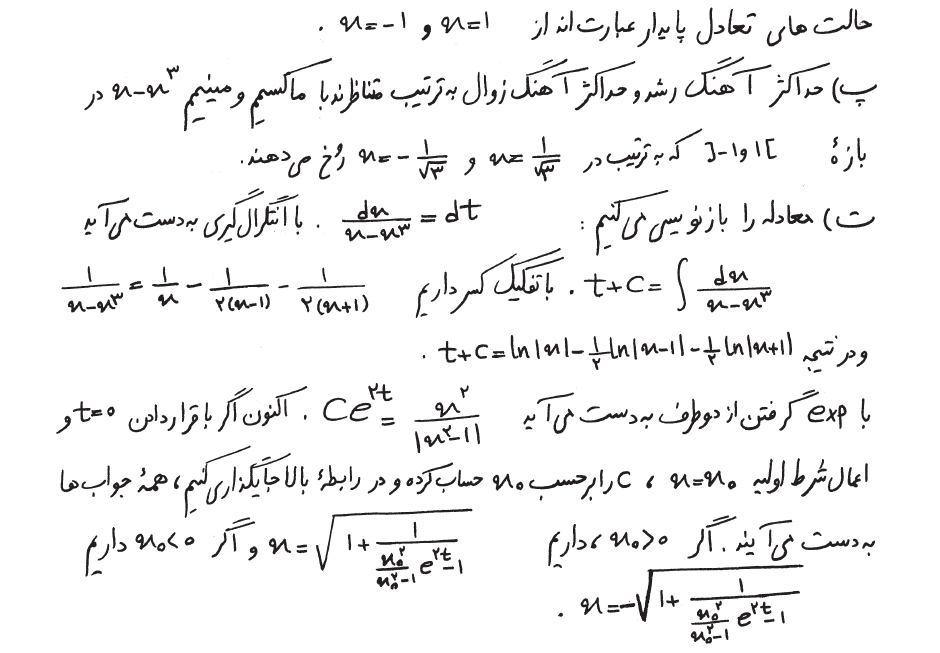 حالت های تعادل پایدار عبارت اند از x=۱ و x=-۱ .
پ) حداکثر آهنگ رشد و حداکثر آهنگ زوال به ترتیب متناظرند با ماکسیمم و مینیمم x-x^۳ در
بازهٔ ]-۱و۱[ که به ترتیب در x=\frac{۱}{\sqrt{۳}} و x=-\frac{۱}{\sqrt{۳}} رُخ می دهند.
ت) معادله را بازنویسی می کنیم : \frac{dx}{x-x^۳}=dt . با انتگرال گیری به دست می آید
t+C=\int\frac{dx}{x-x^۳} . با تفکیک کسر داریم \frac{۱}{x-x^۳}=\frac{۱}{x}-\frac{۱}{۲(x-۱)}-\frac{۱}{۲(x+۱)}
و در نتیجه t+C=ln|x|-\frac{۱}{۲}ln|x-۱|-\frac{۱}{۲}ln|x+۱| .
با exp گرفتن از دو طرف به دست می آید Ce^{۲t}=\frac{x^۲}{|x^۲-۱|} . اکنون اگر با قرار دادن t=۰ و
اعمال شرط اولیه x=x_۰ ، C را برحسب x_۰ حساب کرده و در رابطهٔ بالا جایگذاری کنیم، همهٔ جواب ها
به دست می آیند. اگر x_۰>۰ ، داریم x=\sqrt{۱+\frac{۱}{\frac{x_۰^۲}{x_۰^۲-۱}e^{۲t}-۱}} و اگر x_۰<۰ داریم
x=-\sqrt{۱+\frac{۱}{\frac{x_۰^۲}{x_۰^۲-۱}e^{۲t}-۱}} .